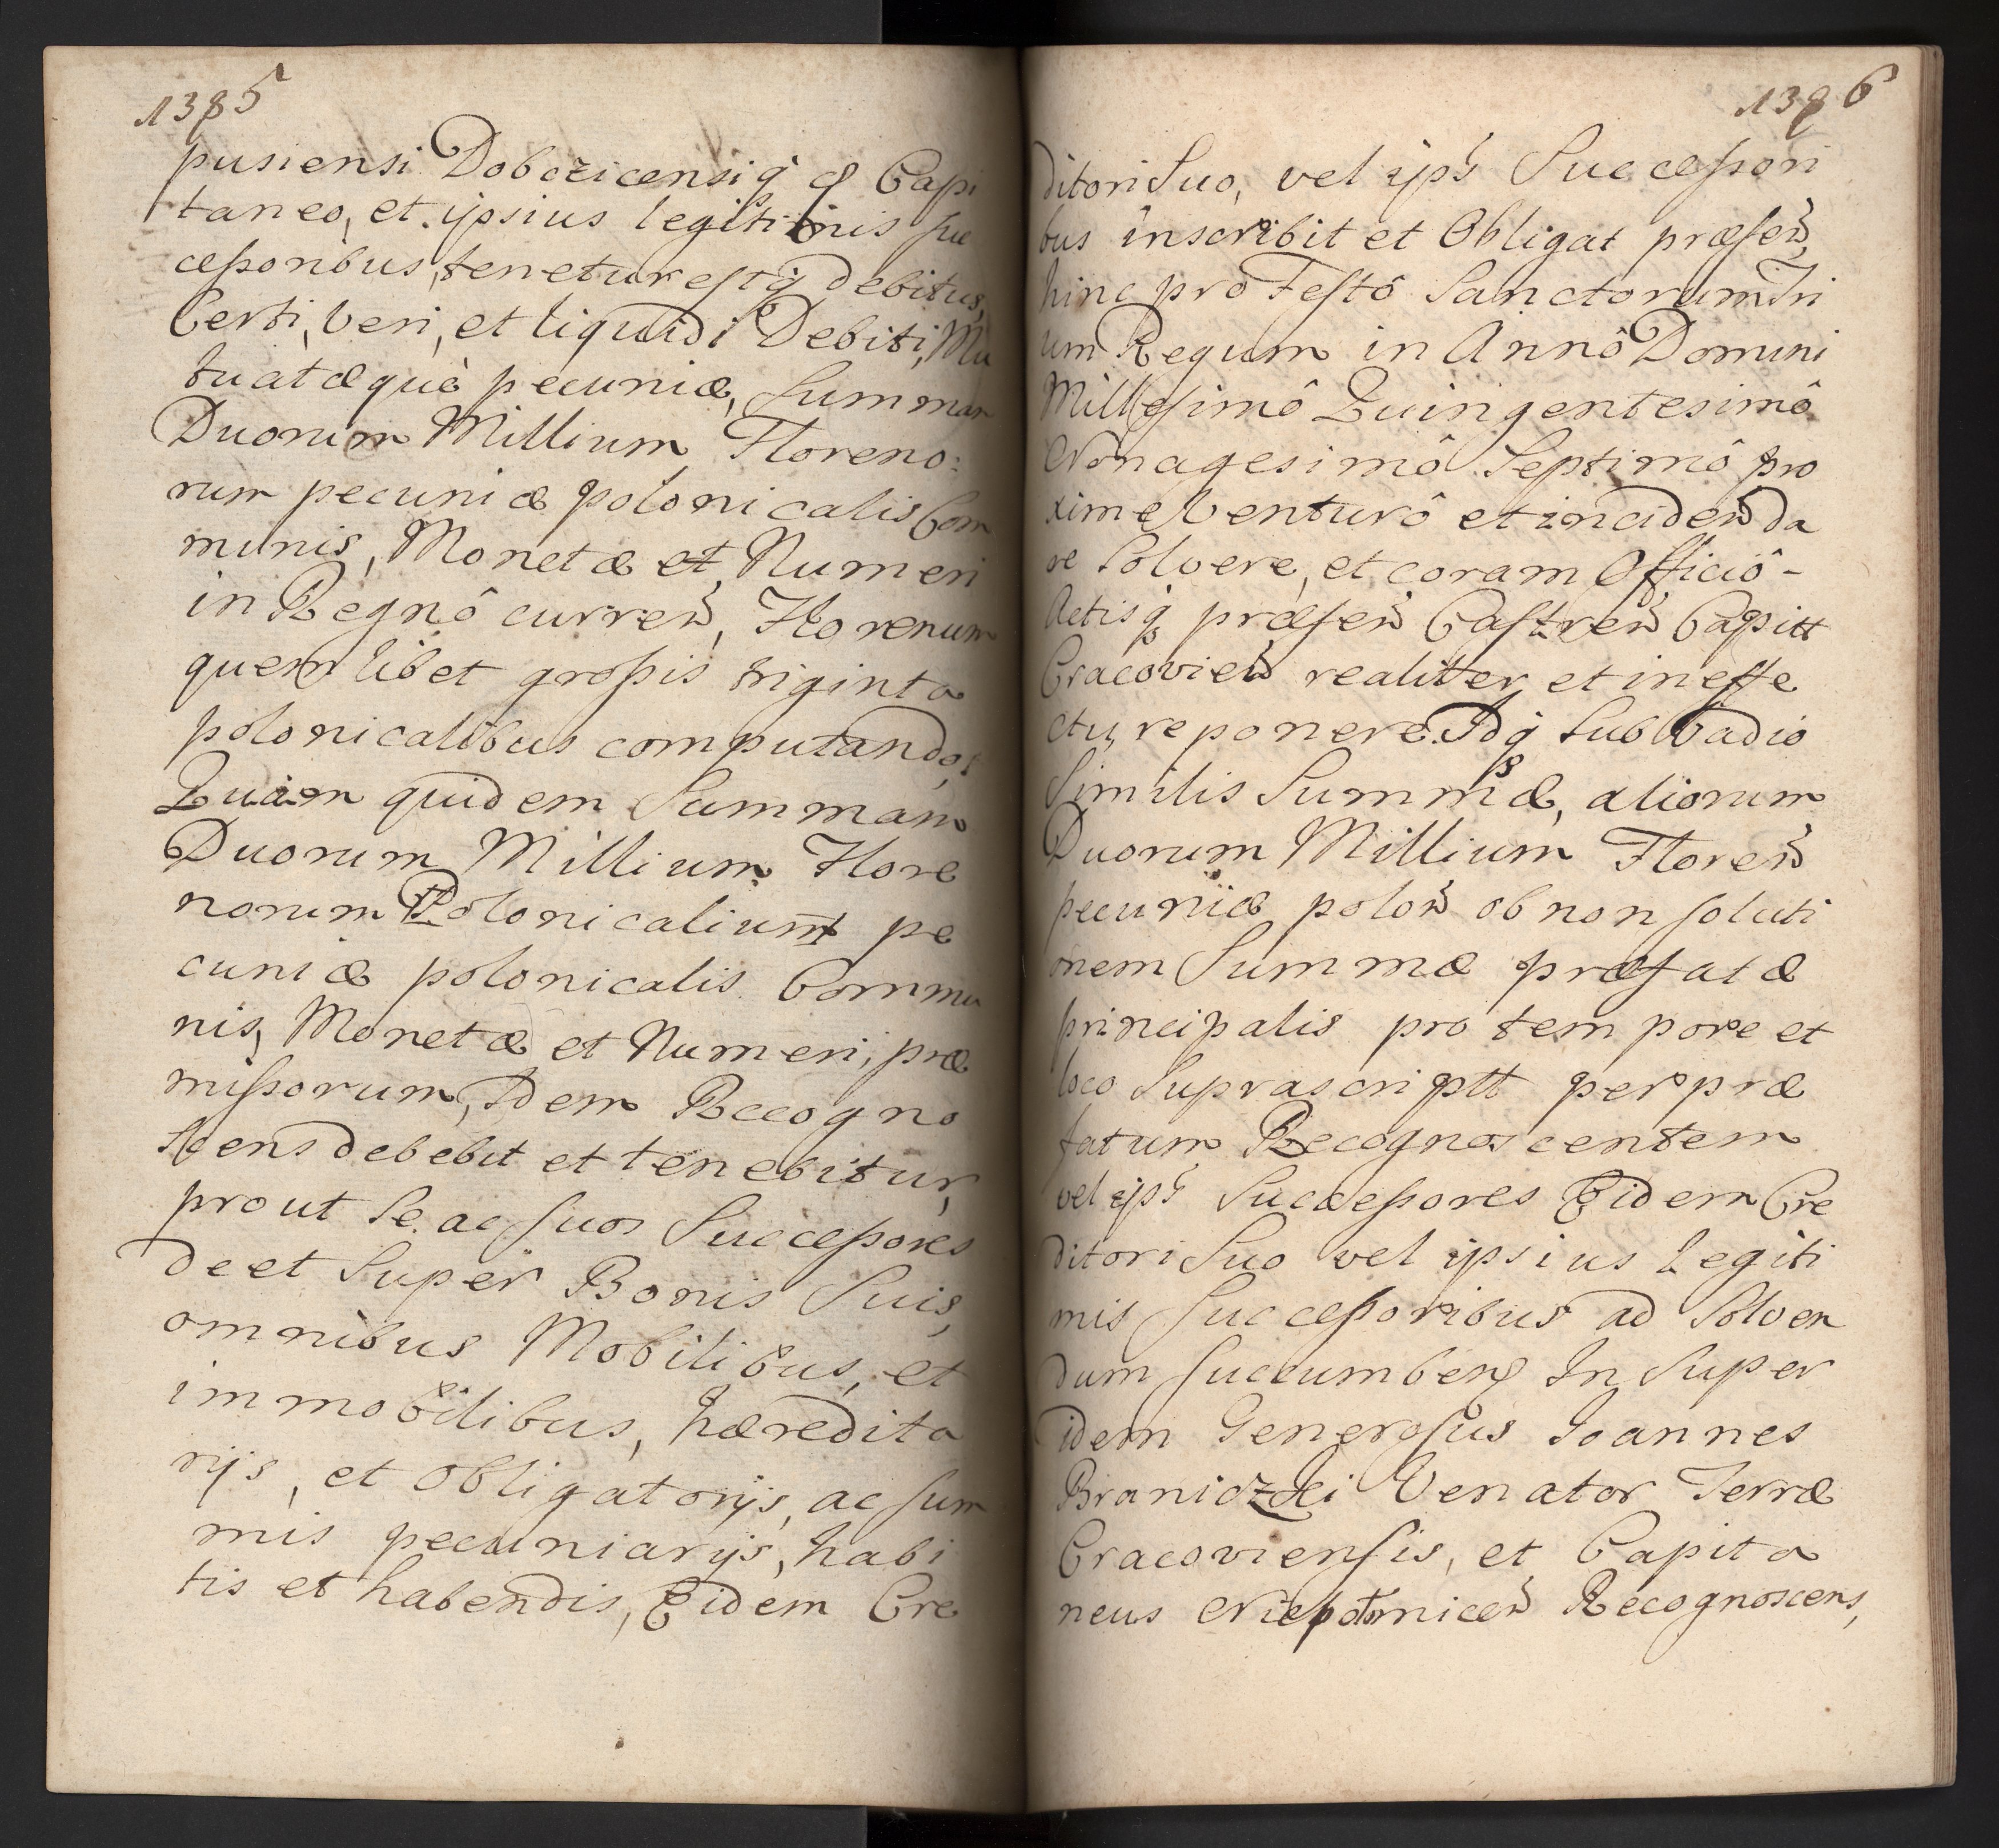 1385
pusiensi Dobczicensiqꝫ & Capi
taneo, et ipsius legitimis suc
cessoribus, tenetur estqꝫ debitus,
Certi, Veri, et liquidi Debiti, Mu
tuatæquè pecuniæ, Summam
Duorum Millium Floreno:
rum pecuniæ polonicalis Com
munis, Monetæ et Numeri
in Regnô curreñ, Florenum
quemlibet grossis triginta
polonicalibus computando,
Quam quidem Summam
Duorum Millium Flore
norum Polonicalium pe
cuniæ polonicalis Commu
nis, Monetæ et Numeri, præ
missorum, Idem Recogno
scens debebit et tenebitur,
prout Se ac suos Successores
de et Super Bonis Suis,
omnibus Mobilibus, et
immobilibus, hæredita
rijs, et obligatorijs, ac sum
mis pecuniarijs, habi
tis et habendis, Eidem Cre
1386
ditori Suo, vel ips̃ Successori
bus inscribit et Obligat præseñ,
hinc pro Festô Sanctorum Tri
um Regum in Annô Domini
Millesimô Quingentesimô
Nonagesimô Septimô pro
xime Venturô et incideñ da
re Solvere, et coram Officiô -
Actisqꝫ præseñ Castreñ Capitt
Cracovieñ realitter et in effe
ctu reponere. Idqꝫ Sub Vadio
Similis Summæ, aliorum
Duorum Millium Floreñ
pecuniæ poloñ ob non soluti
onem Summæ præfatæ
principalis pro tempore et
loco Suprascriptt per præ
fatum Recognoscentem
vel ips̃ Successores Eidem Cre
ditori Suo vel ipsius legiti
mis Successoribus ad Solven
dum succumbeñ In Super
idem Generosus Ioannes
Braniczki Venator Terræ
Cracoviensis, et Capita
neus Niepołomiceñ Recognoscens,